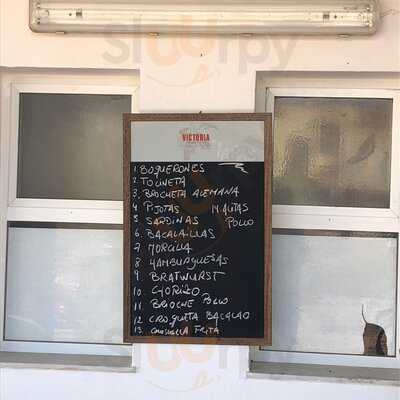 slurpy
VICTORIA
1. BOQUERONES
2. TOCINETA
3. BROCHETA ALEMANA
4 PIJOTAS 14 ALITAS
5 SARDINAS POLLO
6. BACALAILLAS
7 MORCILLA
8 HAMBURGUESAS
9. BRATWURST
10 CHORIZO
11 BRIOCHE POLLO
12 CROQUETA BACALAO
13. FRITA
slurpy